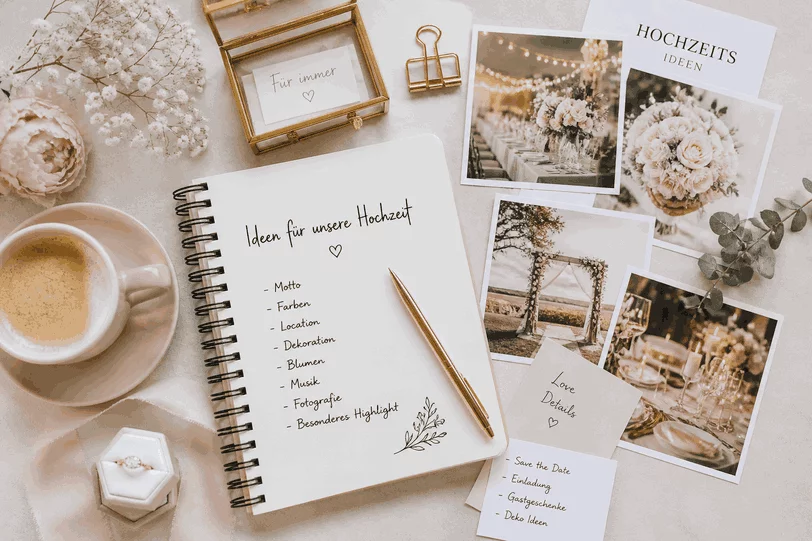 Für immer
HOCHZEITS
IDEEN
Ideen für unsere Hochzeit
- Motto
- Farben
- Location
- Dekoration
- Blumen
- Musik
- Fotografie
- Besonderes Highlight
Love
Details
- Save the Date
- Einladung
- Gastgeschenke
- Deko Ideen